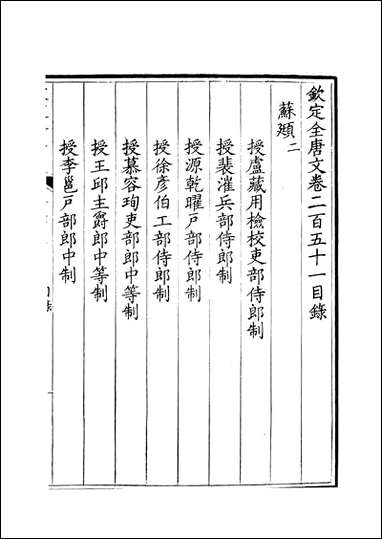 欽定全唐文卷二百五十一目錄
蘇頲二
授盧藏用檢校吏部侍郎制
授裴漼兵部侍郎制
授源乾曜戸部侍郎制
授徐彥伯工部侍郎制
授慕容珣吏部郎中等制
授王邱主爵郎中等制
授李邕戸部郎中制